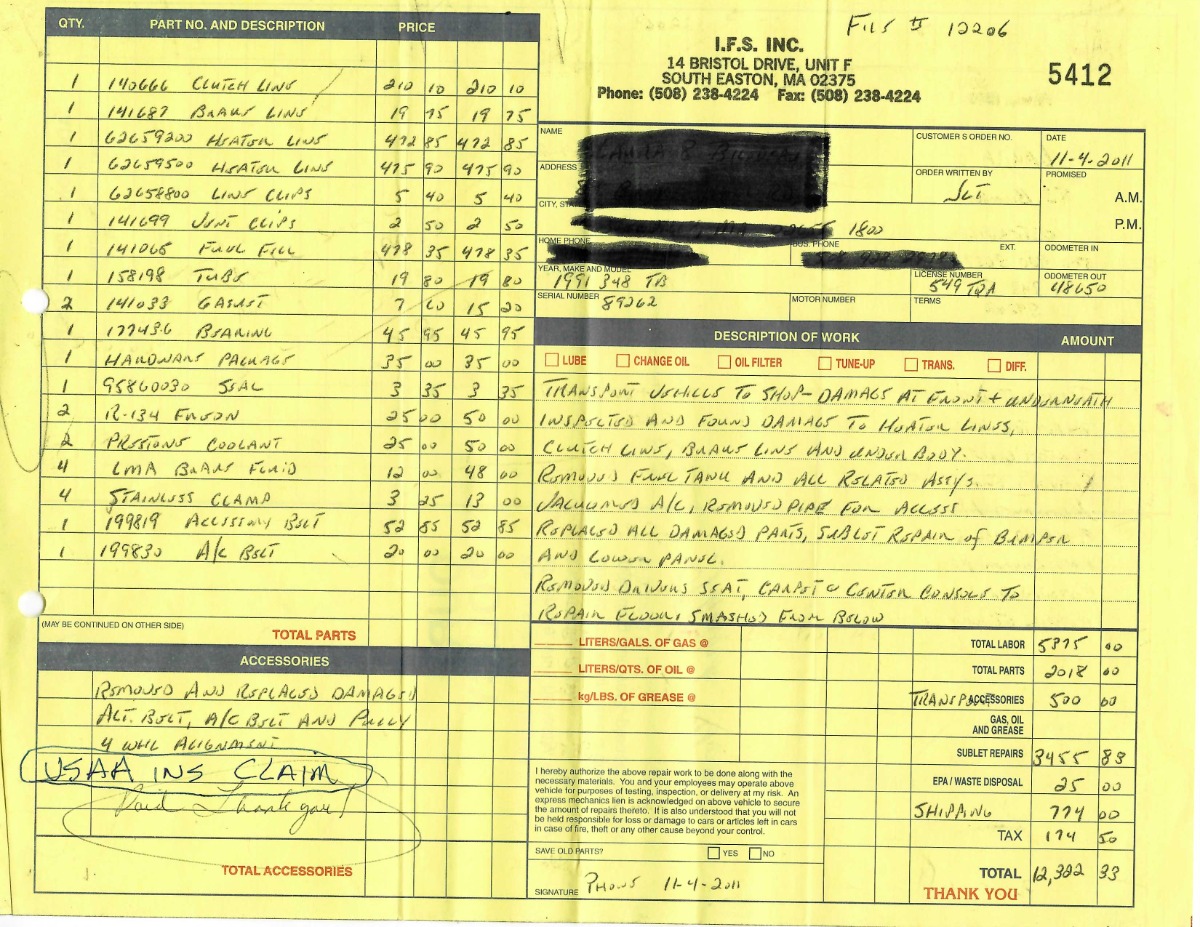 FILE # 12206
I.F.S. INC.
14 BRISTOL DRIVE, UNIT F
SOUTH EASTON, MA 02375
Phone: (508) 238-4224 Fax: (508) 238-4224
5412
QTY. PART NO. AND DESCRIPTION PRICE
1 140666 CLUTCH LINE 210 10 210 10
1 141687 BRAKE LINE 19 75 19 75
1 62659200 HEATER LINE 472 85 472 85
1 62659500 HEATER LINE 475 90 475 90
1 62658800 LINE CLIPS 5 40 5 40
1 141699 VENT CLIPS 2 50 2 50
1 141065 FUEL FILL 478 35 478 35
1 158198 TUBE 19 80 19 80
2 141033 GASKET 7 60 15 20
1 177436 BEARING 45 95 45 95
1 HARDWARE PACKAGE 35 00 35 00
1 95860030 SEAL 3 35 3 35
2 R-134 FREON 25 00 50 00
2 PRESTONE COOLANT 25 00 50 00
4 LMA BRAKE FLUID 12 00 48 00
4 STAINLESS CLAMP 3 25 13 00
1 199819 ACCESSORY BELT 52 85 52 85
1 199830 A/C BELT 20 00 20 00
(MAY BE CONTINUED ON OTHER SIDE) TOTAL PARTS
ACCESSORIES
REMOVED AND REPLACED DAMAGED
ALT. BELT, A/C BELT AND PULLY
4 WHL ALIGNMENT
USAA INS CLAIM
Paid Thank you!
TOTAL ACCESSORIES
NAME CUSTOMER'S ORDER NO. DATE
11-4-2011
ADDRESS ORDER WRITTEN BY PROMISED
A.M.
CITY, STATE P.M.
1800
HOME PHONE BUS. PHONE EXT. ODOMETER IN
YEAR, MAKE AND MODEL LICENSE NUMBER ODOMETER OUT
1991 348 TB 549 TQA 48650
SERIAL NUMBER 89262 MOTOR NUMBER TERMS
DESCRIPTION OF WORK AMOUNT
LUBE CHANGE OIL OIL FILTER TUNE-UP TRANS. DIFF.
TRANSPORT VEHICLE TO SHOP - DAMAGE AT FRONT + UNDERNEATH
INSPECTED AND FOUND DAMAGE TO HEATER LINES,
CLUTCH LINE, BRAKE LINE AND UNDER BODY.
REMOVED FUEL TANK AND ALL RELATED ASSYS.
VACUUMED A/C, REMOVED PIPE FOR ACCESS
REPLACED ALL DAMAGED PARTS, SUBLET REPAIR OF BUMPER
AND LOWER PANEL.
REMOVED DRIVERS SEAT, CARPET & CENTER CONSOLE TO
REPAIR FLOOR, SMASHED FROM BELOW
LITERS/GALS. OF GAS @ TOTAL LABOR 5375 00
LITERS/QTS. OF OIL @ TOTAL PARTS 2018 00
kg/LBS. OF GREASE @ TRANSPORT ACCESSORIES 500 00
GAS, OIL AND GREASE
SUBLET REPAIRS 3455 83
EPA / WASTE DISPOSAL 25 00
SHIPPING 774 00
TAX 174 50
TOTAL 12,322 33
THANK YOU
I hereby authorize the above repair work to be done along with the
necessary materials. You and your employees may operate above
vehicle for purposes of testing, inspection, or delivery at my risk. An
express mechanics lien is acknowledged on above vehicle to secure
the amount of repairs thereto. It is also understood that you will not
be held responsible for loss or damage to cars or articles left in cars
in case of fire, theft or any other cause beyond your control.
SAVE OLD PARTS? YES NO
SIGNATURE PHONE 11-4-2011